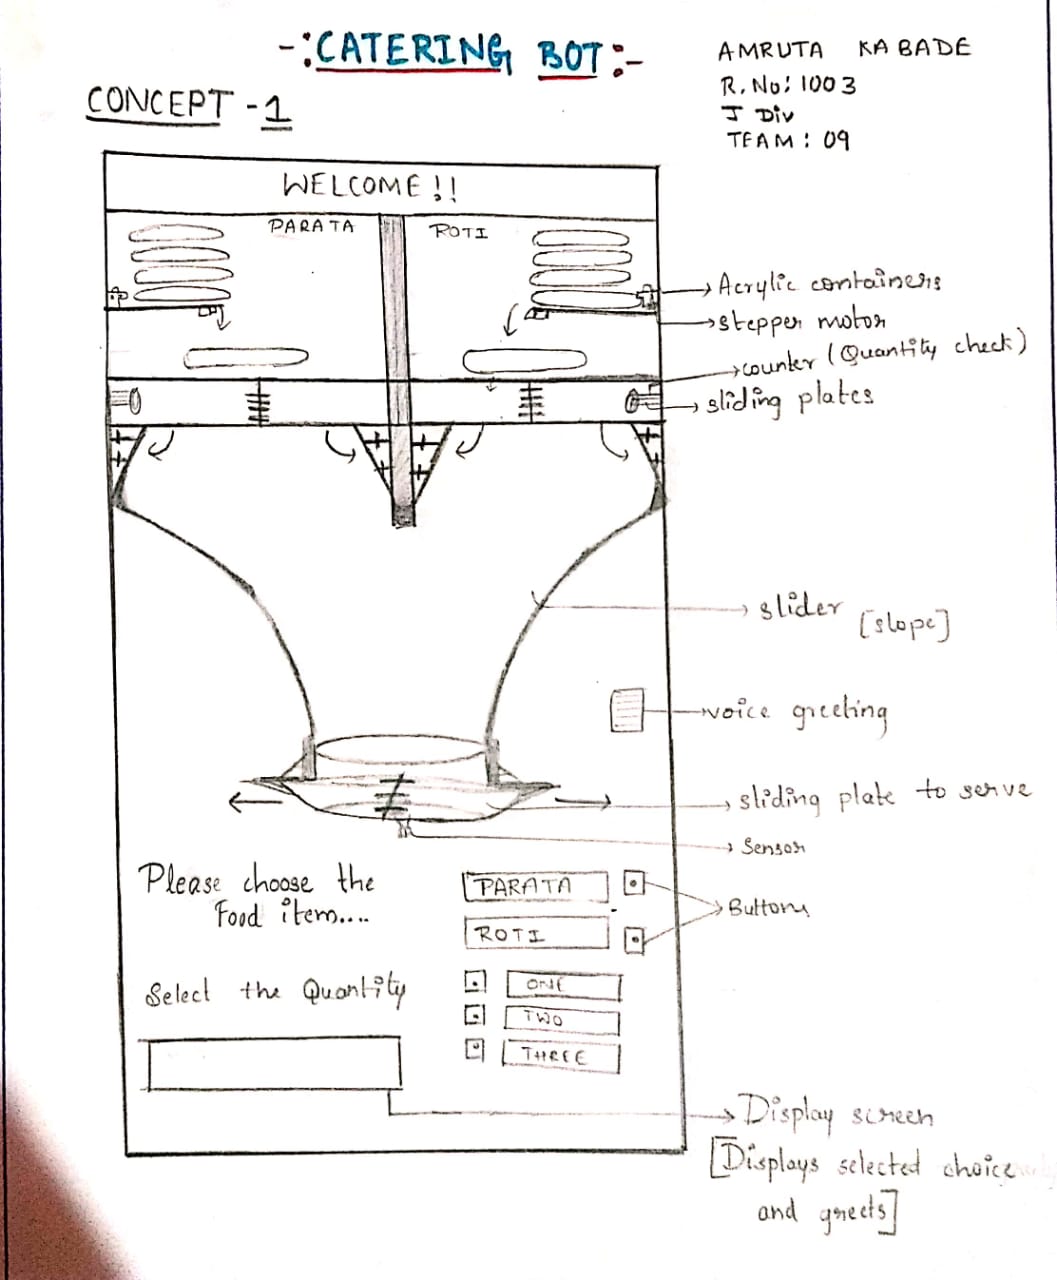 -:CATERING BOT:-
AMRUTA KABADE
R.No: 1003
J Div
TEAM: 09
CONCEPT -1
WELCOME!!
PARATA
ROTI
Acrylic containers
stepper motor
counter (Quantity check)
sliding plates
slider [slope]
voice greeting
sliding plate to serve
Sensor
Please choose the
Food item....
PARATA
ROTI
Buttons
Select the Quantity
ONE
TWO
THREE
Display screen
[Displays selected choice
and greets]